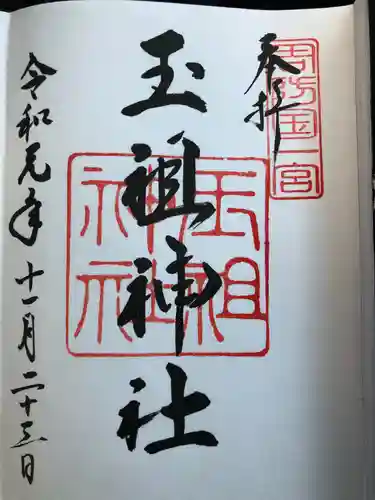 奉拝
周防国一宮
玉祖神社
玉祖神社
令和元年十一月二十三日